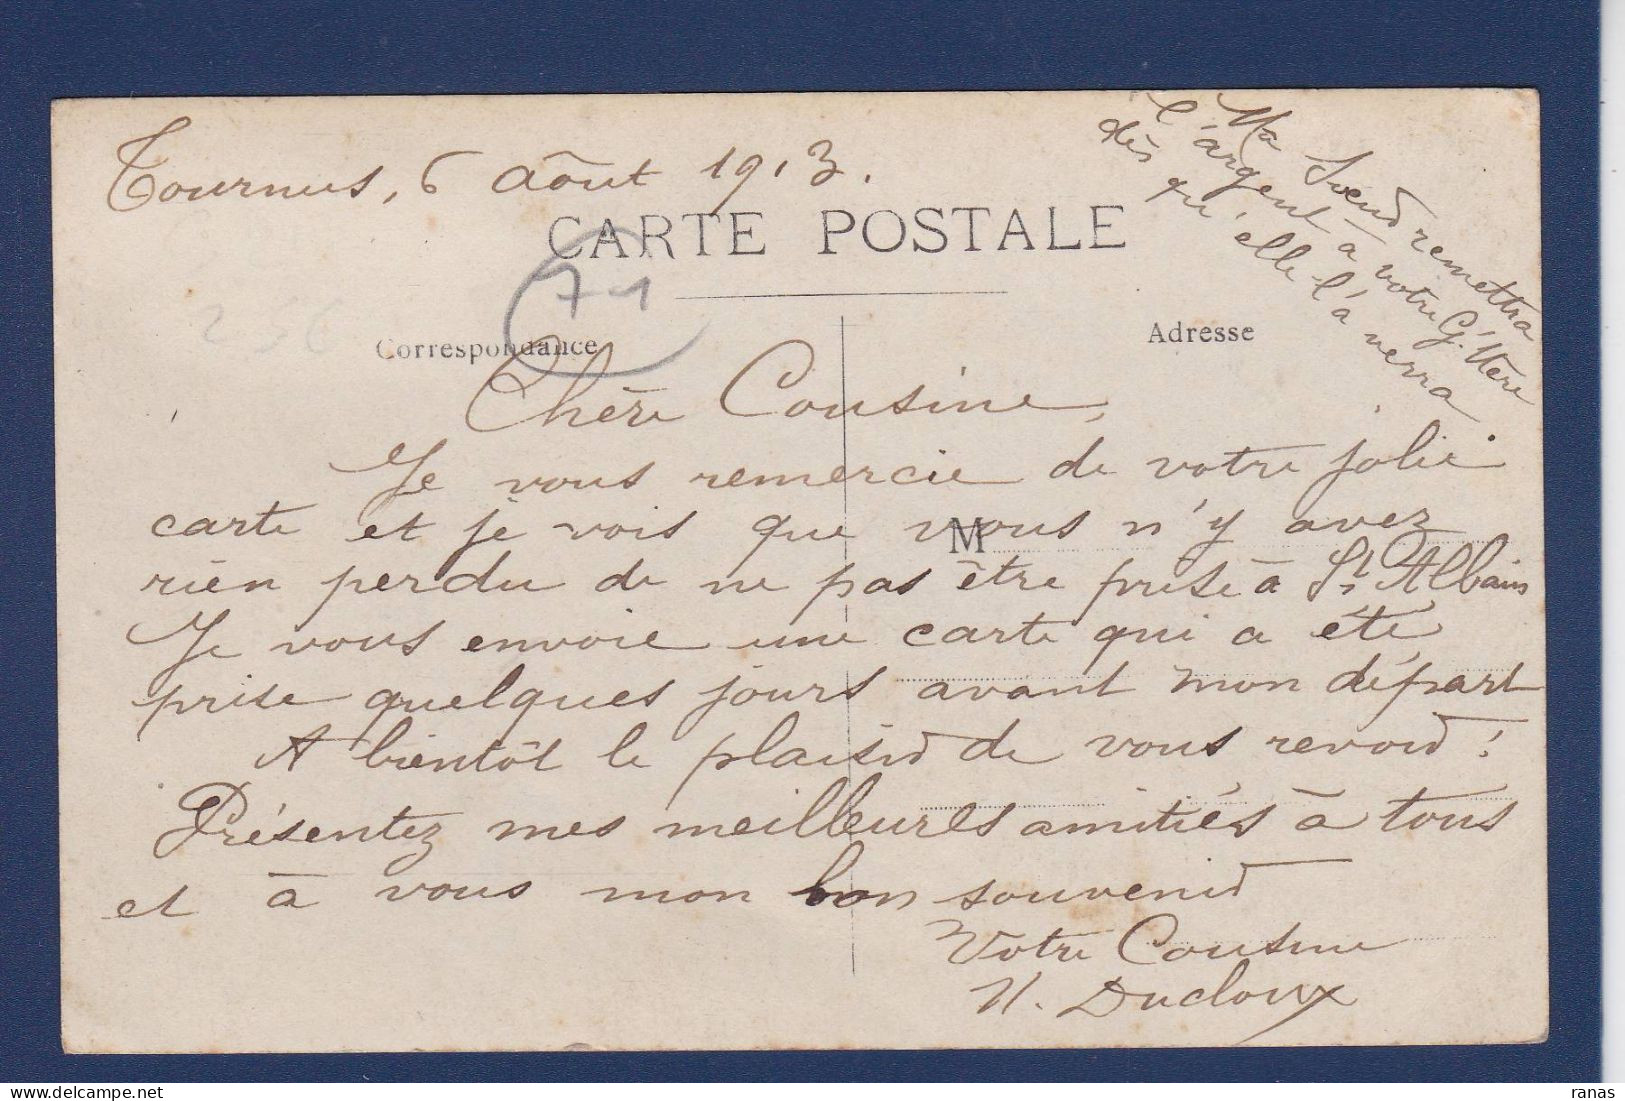 Tournus, 6 Aôut 1913.
Ma Soeur remettra
l'argent à votre G. Mère
dès qu'elle l'a verra
CARTE POSTALE
71
Correspondance
Adresse
Chère Cousine,
Je vous remercie de votre jolie
carte et je vois que vous n'y avez
M
rien perdu de ne pas être prise à St Albain
Je vous envoie une carte qui a été
prise quelques jours avant mon départ
A bientôt le plaisir de vous revoir!
Présentez mes meilleures amitiés à tous
et à vous mon bon souvenir
Votre Cousine
Ducloux
ranas